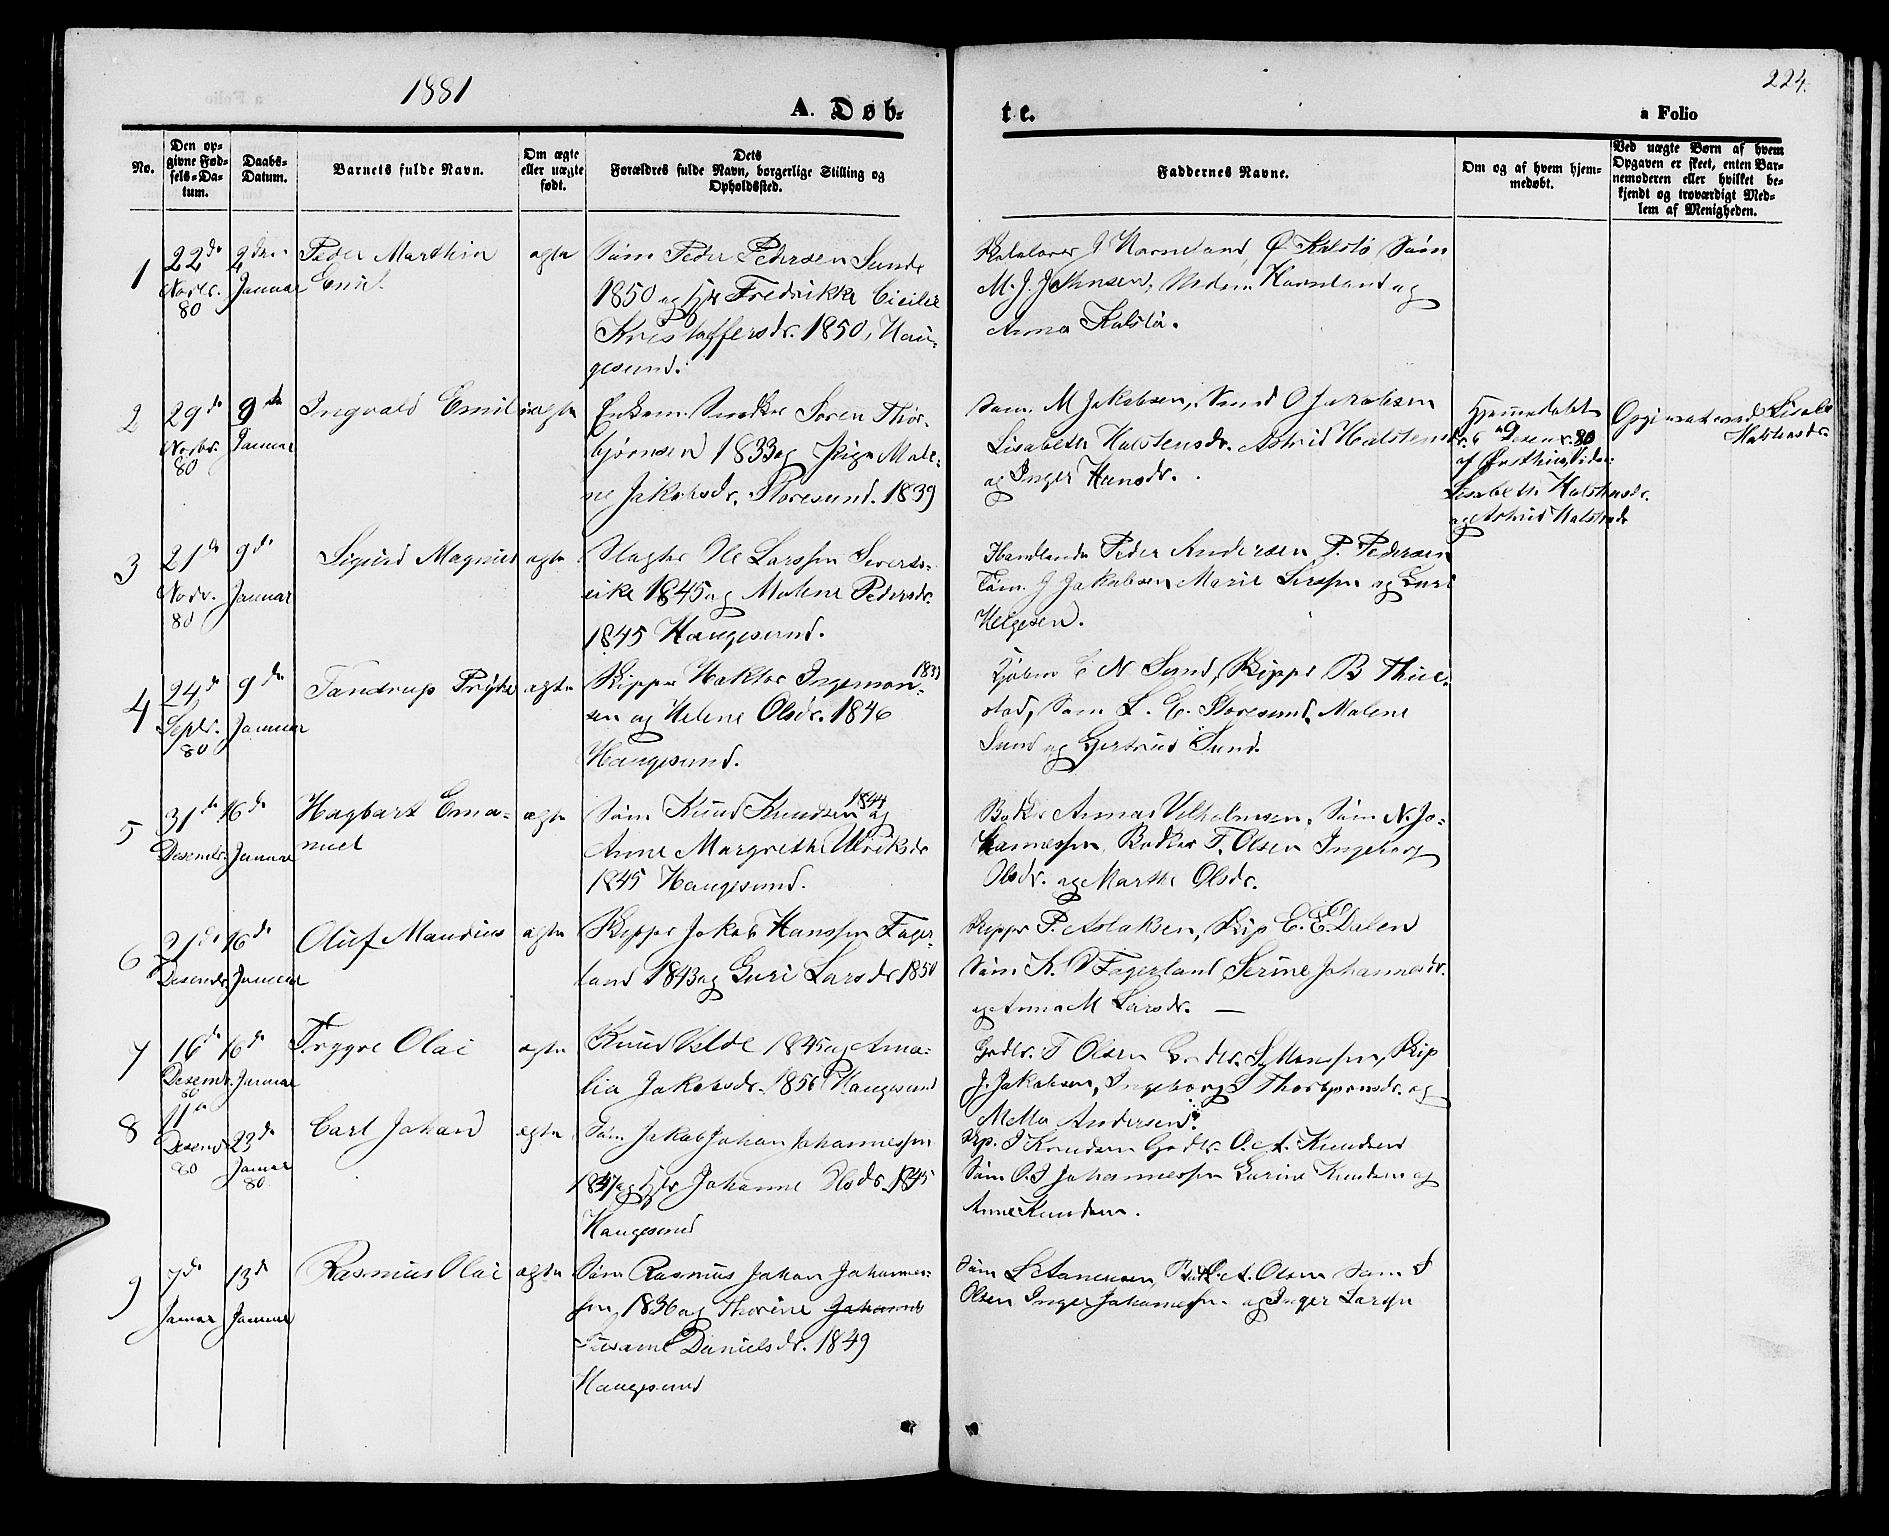 1881
224.
A. Døb-
te.
a Folio
No.
Den op-
givne Fød-
sels-Da-
tum.
Daabs-
Datum.
Barnets fulde Navn.
Om ægte
eller uægte
født.
Dets
Forældres fulde Navn, borgerlige Stilling og
Opholdssted.
Faddernes Navne.
Om og af hvem hjem-
medøbt.
Ved uægte Børn af hvem
Opgaven er skeet, enten Bar-
nemoderen eller hvilket be-
kjendt og troværdigt Med-
lem af Menigheden.
1
22de
Novbr.
80
2den
Januar
Peder Marthin
Emil
ægte
Søm Peder Pedersen Sunde
1850 og Hst Fredrikke Cicilie
Kristoffersdr. 1850, Hau-
gesund.
J Norneland, Ø. Kalstø, Søm
M. J. Johnsen, Havneland og
Anna Kalstø.
2
29de
Novbr.
80
9de
Januar
Ingvald Emil
uægte
Enkem. Snedker Søren Thor-
bjørnsen 1833 og Pige Male-
ne Jakobsdr. Storesund. 1839
Søm. M Jakobsen, Smed O Jakobsen
Lisabeth Halstensdr. Astrid Halstensdr.
og Inger Hansdr.
Hjemmedøbt
Desembr. 80
af
Lisabeth Halstensdr.
og Astrid Halstensdr
Lisab.
Halstensdr.
3
21de
Novbr.
80
9de
Januar
Sigurd Magnus
ægte
Slagter Ole Larssen Sverts-
vike 1845 og Malene Pedersdr.
1845 Haugesund.
Handlende Peder Andersen P. Pedersen
Tøm. J Jakobsen Marie Larssen og Guri
Helgesen.
4
24de
Septbr.
80
9de
Januar
Tandrup Tryke
ægte
Skipper Haktor Ingemon- 1839
sen og Helene Olsdr. 1846
Haugesund.
E N Sund, Skipper B Thue-
stad, Søm L. C. Storesund, Malene
Sund og Gjertrud Sund.
5
31de
Desembr.
16de
Januar
Hagbart Ema-
nuel
ægte
Søm Knud Knudsen 1844 og
Anne Margrethe Ulriksdr
1845 Haugesund.
Bøker Annas Vilhelmsen, Søm N. Jo-
hannessen, Bødker T. Olsen Ingeborg
Olsdr. og Marthe Olsdr.
6
21de
Desembr.
16de
Januar
Oluf Maurius
ægte
Skipper Jakob Hanssen Fager-
land 1843 og Guri Larsdr 1850
Skipper P. Aslaksen, Skip E. E. Dalen
Søm K. Fagerland Serine Johannesdr.
og Anna M Larsdr. —
7
16de
Desembr.
80
16de
Januar
Trygve Olai
ægte
Knud Velde 1845 og Ama-
lia Jakobsdr. 1856 Haugesund
T Olsen Monssen, Skip
J. Jakobsen, Ingeborg Thorbjørnsdr. og
Andersen.
8
11de
Desembr
80
23de
Januar
80
Carl Johan
ægte
Søm Jakob Johan Johannessen
1841 og Hst Johanne Olsdr. 1845
Haugesund
Skp. J Knudsen O. A. Knudsen
Søm O. J Johannessen Karine Knudsen og
Anne Knudsen.
9
7de
Januar
13de
Januar
Rasmus Olai
ægte
Søm Rasmus Johan Johannes-
sen, 1836 og Thorine Johannes
Susanne Danielsdr. 1849
Haugesund
Søm L Aanensen, A. Olsen Søm S
Olsen Inger Johannessen og Inger Larsen